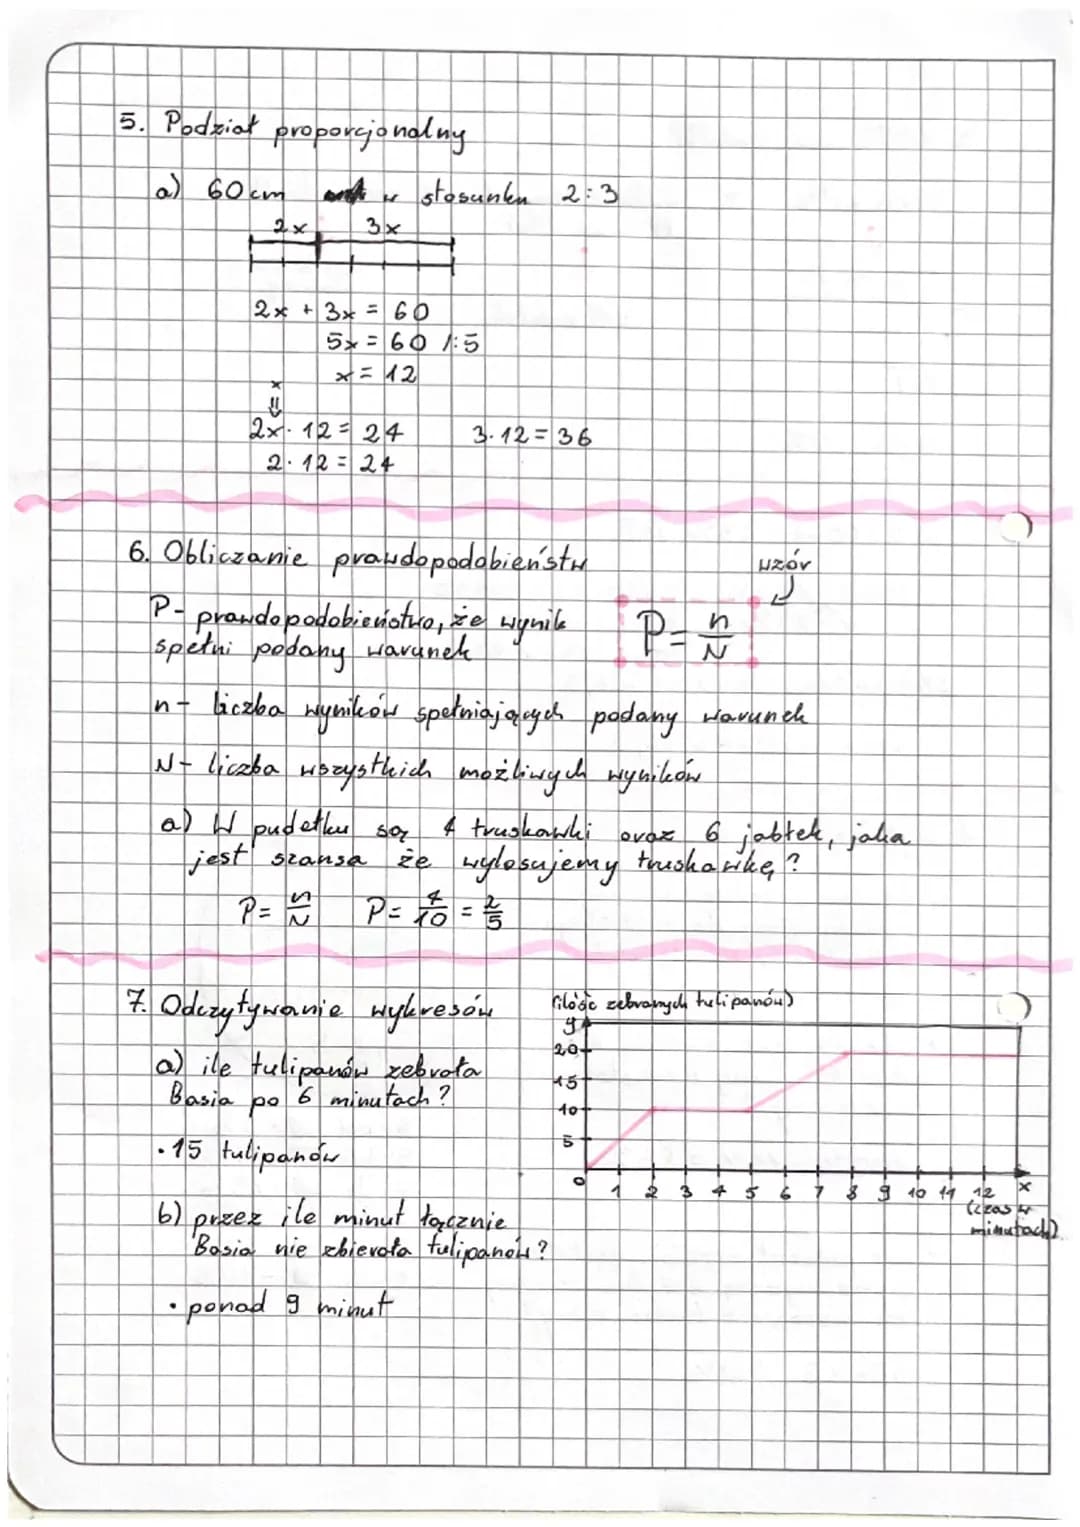 5. Podział proporcjonalny
a) 60 cm w stosunku 2:3
2x 3x
2x + 3x = 60
5x = 60 /:5
x = 12
x
⇓
2x · 12 = 24 3·12 = 36
2·12 = 24
6. Obliczanie prawdopodobieństw
wzór
P = n/N
P- prawdopodobieństwo, że wynik
spełni podany warunek
n- liczba wyników spełniających podany warunek
N- liczba wszystkich możliwych wyników
a) W pudełku są 4 truskawki oraz 6 jabłek, jaka
jest szansa że wylosujemy truskawkę?
P = n/N P = 4/10 = 2/5
7. Odczytywanie wykresów
a) ile tulipanów zebrała
Basia po 6 minutach?
• 15 tulipanów
b) przez ile minut łącznie
Basia nie zbierała tulipanów?
• ponad 9 minut
(ilość zebranych tulipanów)
y
20
15
10
5
0 1 2 3 4 5 6 7 8 9 10 11 12 x
(czas w
minutach)